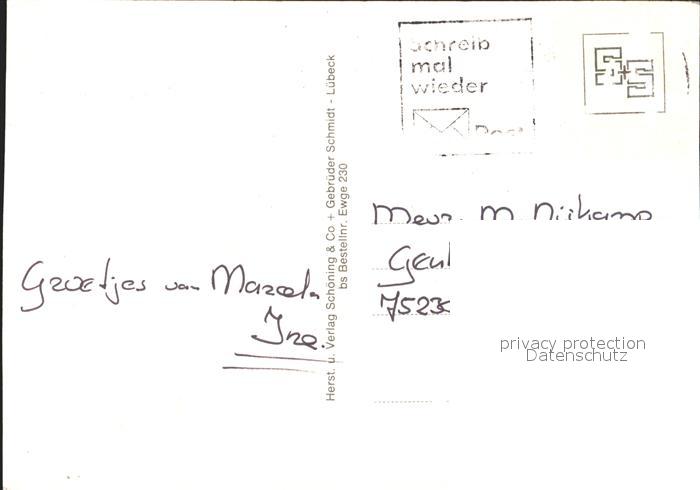 schreib
mal
wieder
Post
Herst. u. Verlag Schöning & Co. + Gebrüder Schmidt - Lübeck
bs Bestellnr. Ewge 230
Mevr. M
7523
Groetjes van
Ine.
privacy protection
Datenschutz